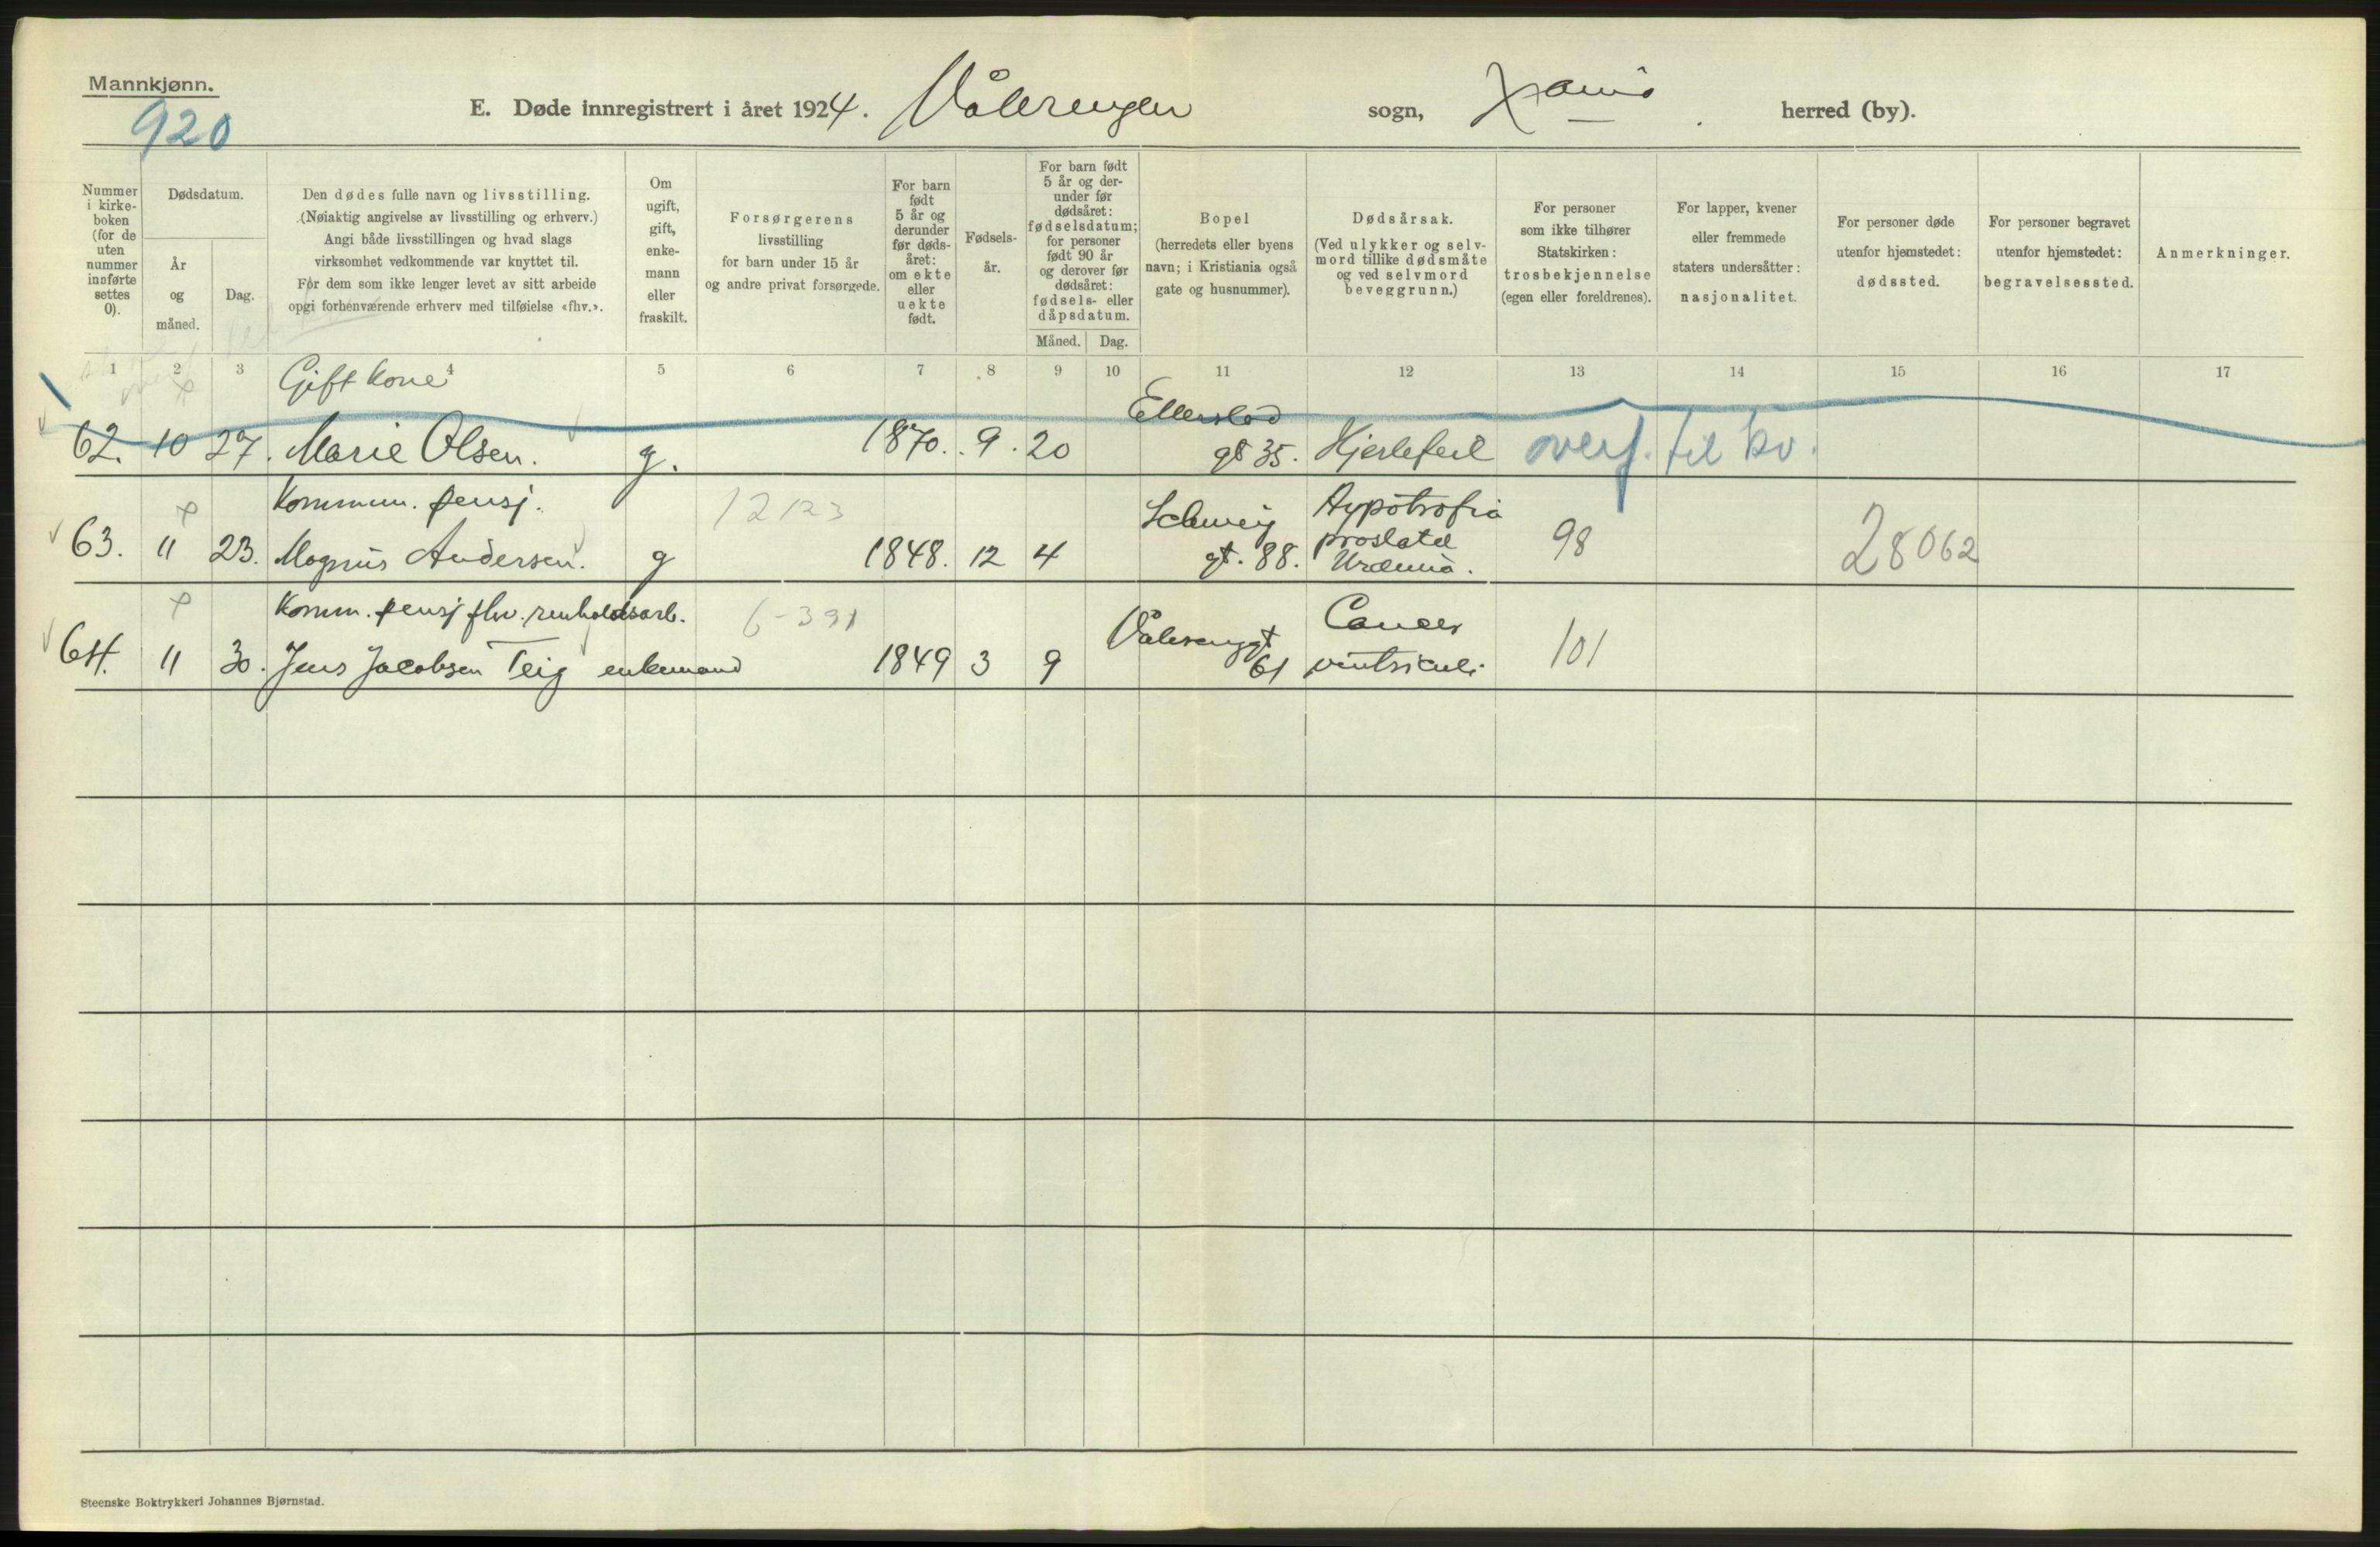 Mannkjønn.
920
E. Døde innregistrert i året 1924. Vålerengen sogn, Xania herred (by).
Nummer i kirke-boken (for de uten nummer innførte settes 0).
Dødsdatum.
År og måned.
Dag.
Den dødes fulle navn og livsstilling.
(Nøiaktig angivelse av livsstilling og erhverv.)
Angi både livsstillingen og hvad slags
virksomhet vedkommende var knyttet til.
For dem som ikke lenger levet av sitt arbeide
opgi forhenværende erhverv med tilføielse «fhv.».
Om ugift, gift, enke-mann eller fraskilt.
Forsørgerens
livsstilling
for barn under 15 år
og andre privat forsørgede.
For barn født 5 år og derunder før døds-året: om ekte eller uekte født.
Fødsels-år.
For barn født 5 år og der-under før dødsåret: fødselsdatum; for personer født 90 år og derover før dødsåret: fødsels- eller dåpsdatum.
Måned. Dag.
Bopel
(herredets eller byens
navn; i Kristiania også
gate og husnummer).
Dødsårsak.
(Ved ulykker og selv-
mord tillike dødsmåte
og ved selvmord
beveggrunn.)
For personer
som ikke tilhører
Statskirken:
trosbekjennelse
(egen eller foreldrenes).
For lapper, kvener
eller fremmede
staters undersåtter:
nasjonalitet.
For personer døde
utenfor hjemstedet:
dødssted.
For personer begravet
utenfor hjemstedet:
begravelsessted.
Anmerkninger.
1 2 3 4 5 6 7 8 9 10 11 12 13 14 15 16 17
Gift kone Ellerslad
62. 10 27. Marie Olsen. g. 1870. 9. 20 gt 35. Hjertefeil overf. til kv.
Kommun. pensj. 12123 Schweig Hypotrofia
63. 11 23. Magnus Andersen. g 1848. 12 4 gt. 88. prostatæ 98 28062
Urœmia.
Komm. pensj fhv. renholdsarb. 6-391 Vålerenggt Cancer
64. 11 30. Jens Jacobsen Teig enkemand 1849 3 9 61 ventriculi 101
Steenske Boktrykkeri Johannes Bjørnstad.